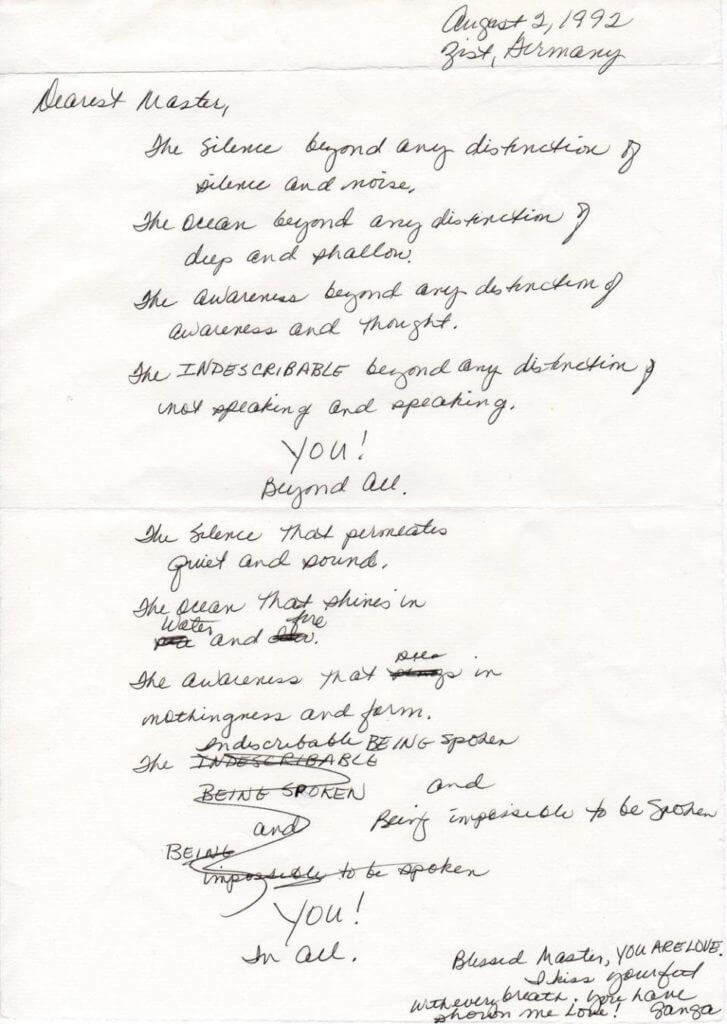 August 2, 1992
Zist, Germany
Dearest Master,
The Silence beyond any distinction of
silence and noise,
The Ocean beyond any distinction of
deep and shallow.
The awareness beyond any distinction of
awareness and thought.
The INDESCRIBABLE beyond any distinction of
not speaking and speaking.
YOU!
Beyond All.
The Silence that permeates
quiet and sound.
The Ocean that shines in
Water and fire.
The awareness that sees in
nothingness and form.
Indiscribable BEING Spoken
The INDESCRIBABLE
BEING SPOKEN and
and Being impossible to be Spoken
BEING
impossible to be spoken
YOU!
In All.
Blessed Master, YOU ARE LOVE.
I kiss your feet
with every breath. You have
shown me Love! Ganga